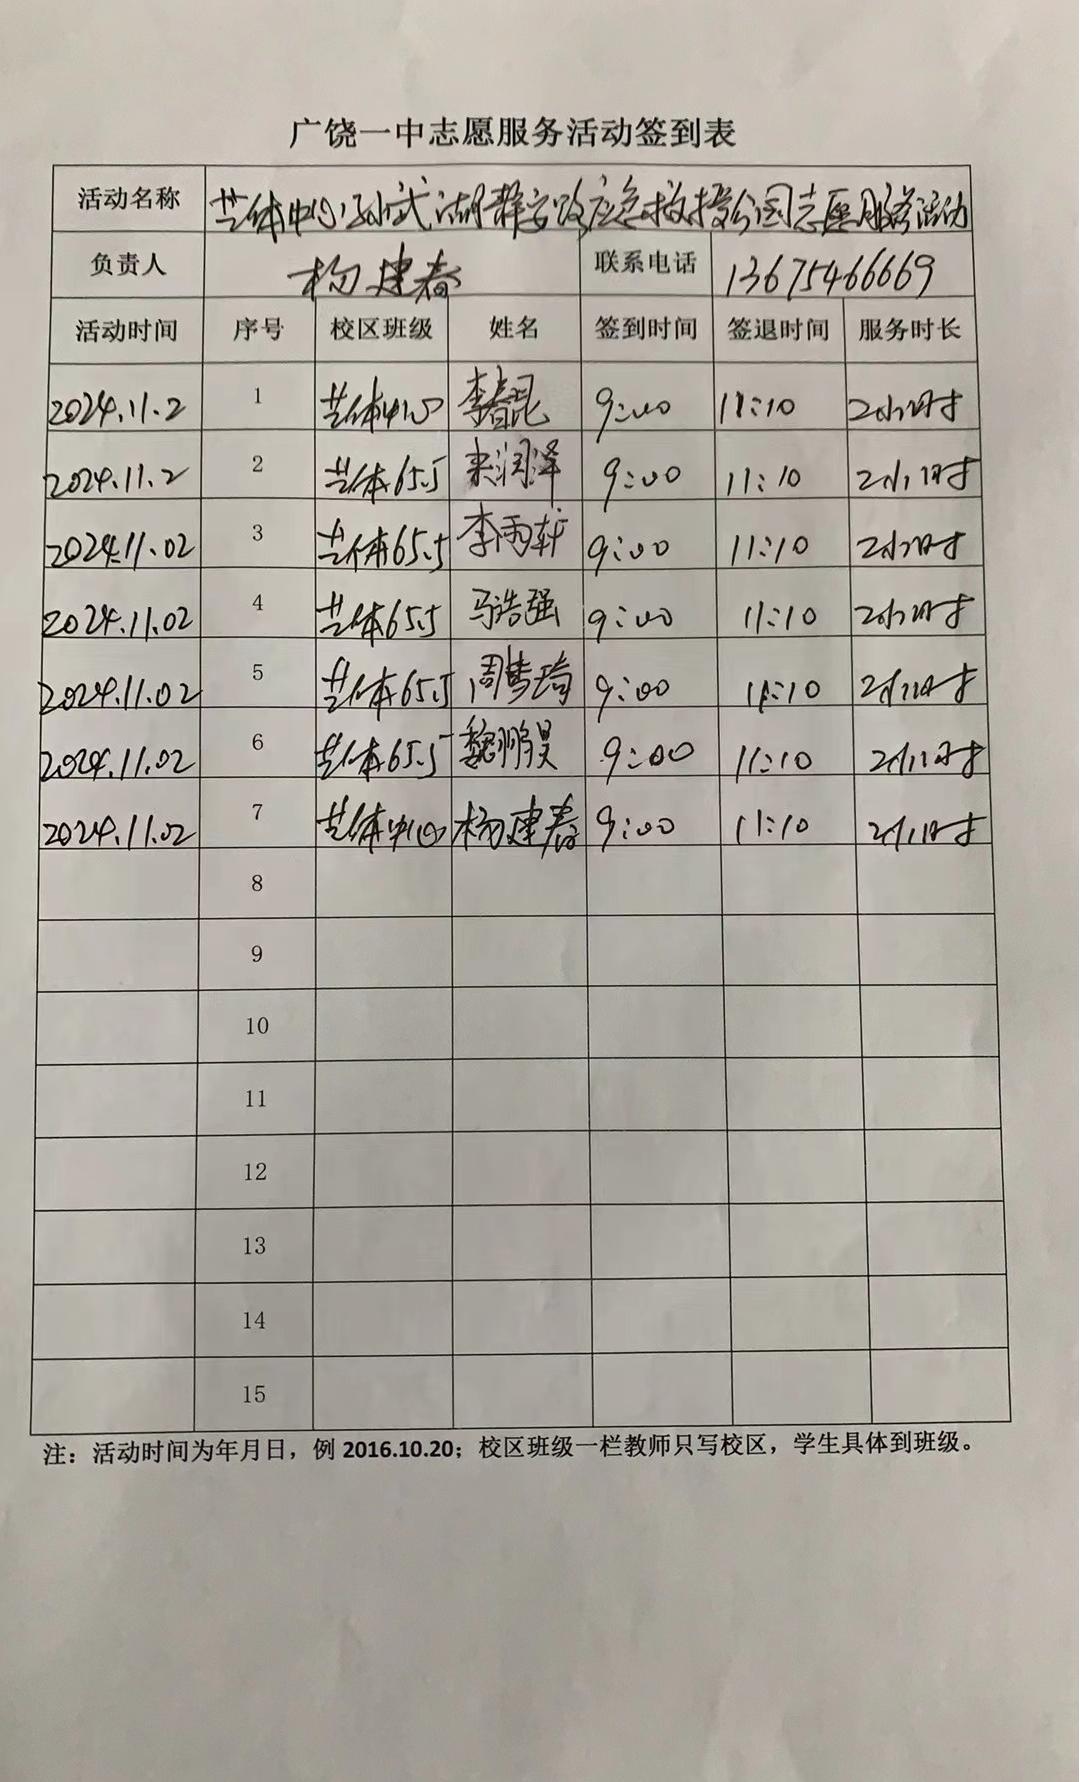 广饶一中志愿服务活动签到表
活动名称 艺体中心孙武湖静安路应急救援公园志愿服务活动
负责人 杨建春 联系电话 13675466669
活动时间 序号 校区班级 姓名 签到时间 签退时间 服务时长
2024.11.2 1 艺体中心 李春昆 9:00 11:10 2小时
2024.11.2 2 艺体65.5 来润泽 9:00 11:10 2小时
2024.11.02 3 艺体65.5 李雨轩 9:00 11:10 2小时
2024.11.02 4 艺体65.5 马浩强 9:00 11:10 2小时
2024.11.02 5 艺体65.5 9:00 11:10 2小时
2024.11.02 6 艺体65.5 魏鹏昊 9:00 11:10 2小时
2024.11.02 7 艺体中心 杨建春 9:00 11:10 2小时
8
9
10
11
12
13
14
15
注：活动时间为年月日，例 2016.10.20；校区班级一栏教师只写校区，学生具体到班级。